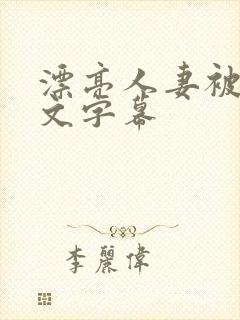 漂亮人妻被
文字幕
李麗偉